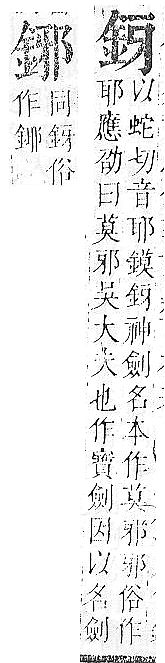 釾
以蛇切音耶鏌釾神劍名本作莫邪邪俗作
耶應劭曰莫邪吳大夫也作寶劍因以名劍
鋣
同釾俗
作鎁